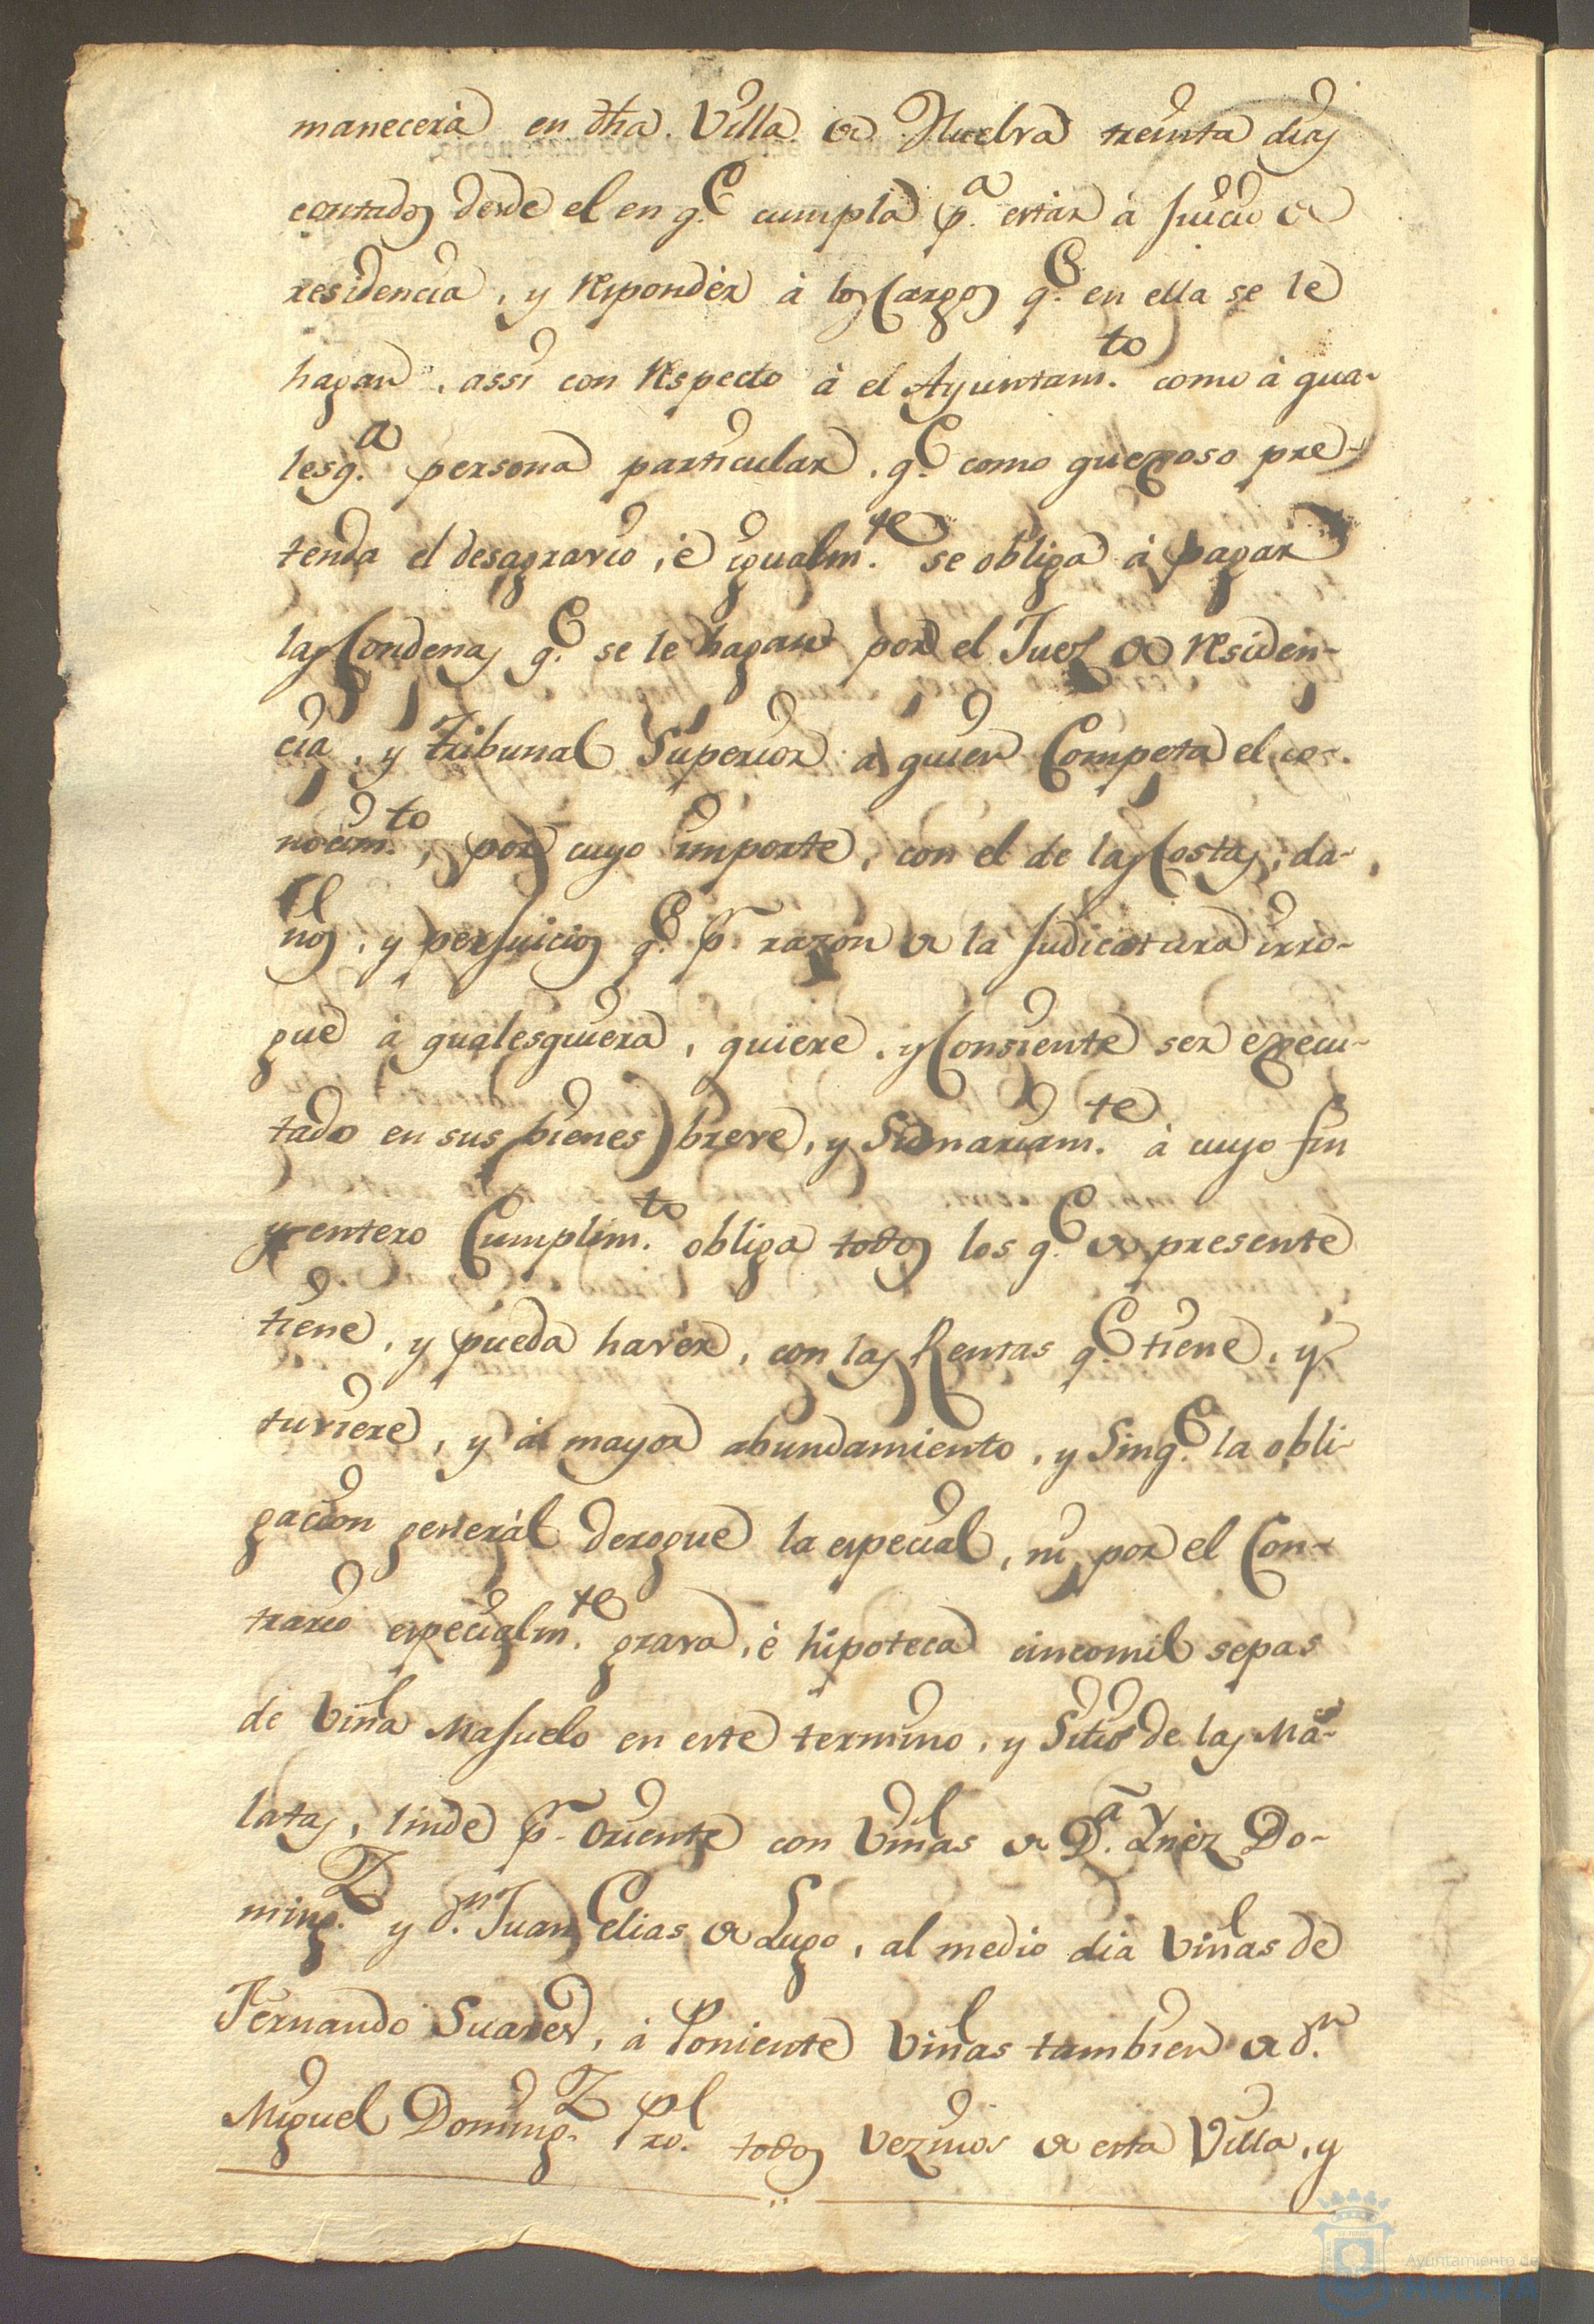 manecerà en dha. Villa de Huelva treinta dias
contados desde el en q.e cumpla p.a estàr à juicio de
residencia, y respondèr à los Cargos q.e en ella se le
hagan, assi con respecto à el Ayuntam.to como à qua-
lesq.a persona particular, q.e como quexoso pre-
tenda el desagravio, è igualm.te se obliga à pagar
las Condenas q.e se le hagan por el Juez de residen-
cia, y tribunal Superior à quien Competa el co-
nocim.to, por cuyo importe, con el de las Costas, da-
ños, y perjuicios q.e pr. razon de la judicatura irro-
gue à qualesquiera, quiere, y Consiente ser execu-
tado en sus bienes breve, y Sumariam.te à cuyo fin
y entero Cumplim.to obliga todos los q.e de presente
tiene, y pueda havèr, con las Rentas q.e tiene, y
tuviere, y à mayor abundamiento, y sin q.e la obli-
gacion generàl derogue la especial, ni por el Con-
trario especialm.te grava, è hipoteca cincomil sepas
de Viña Majuelo en este termino, y Sitio de las Ma-
latas, linde pr. Oriente con Viñas de D.a Ynèz Do-
ming.z y d.n Juan Elias de Lugo, al medio dia Viñas de
Fernando Suares, à Poniente Viñas tambien de d.n
Miguel Doming.z Pro. todos Vezinos de esta Villa, y
Ayuntamiento de
HUELVA